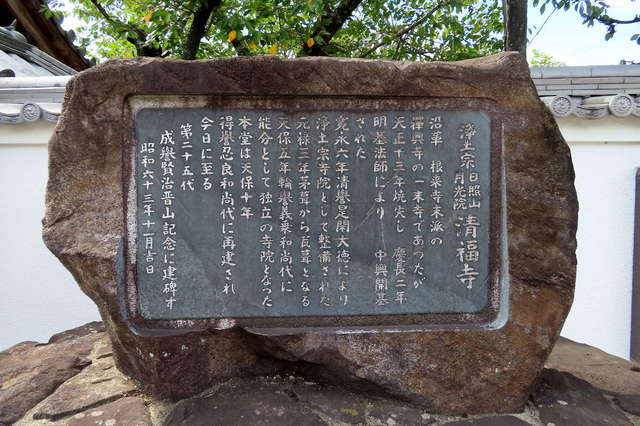 浄土宗 日照山 月光院 清福寺
沿革 根来寺末派の
禅興寺の一末寺であつたが
天正十三年焼失し 慶長二年
明基法師により 中興開基
された
寛永六年清誉是閑大徳により
浄土宗寺院として整備された
元禄三年茅葺から瓦葺となる
天保五年輪誉義栗和尚代に
能分として独立の寺院となった
本堂は天保十年
得誉忍良和尚代に再建され
今日に至る
第二十五代
成誉賢治晋山記念に建碑す
昭和六十三年十一月吉日